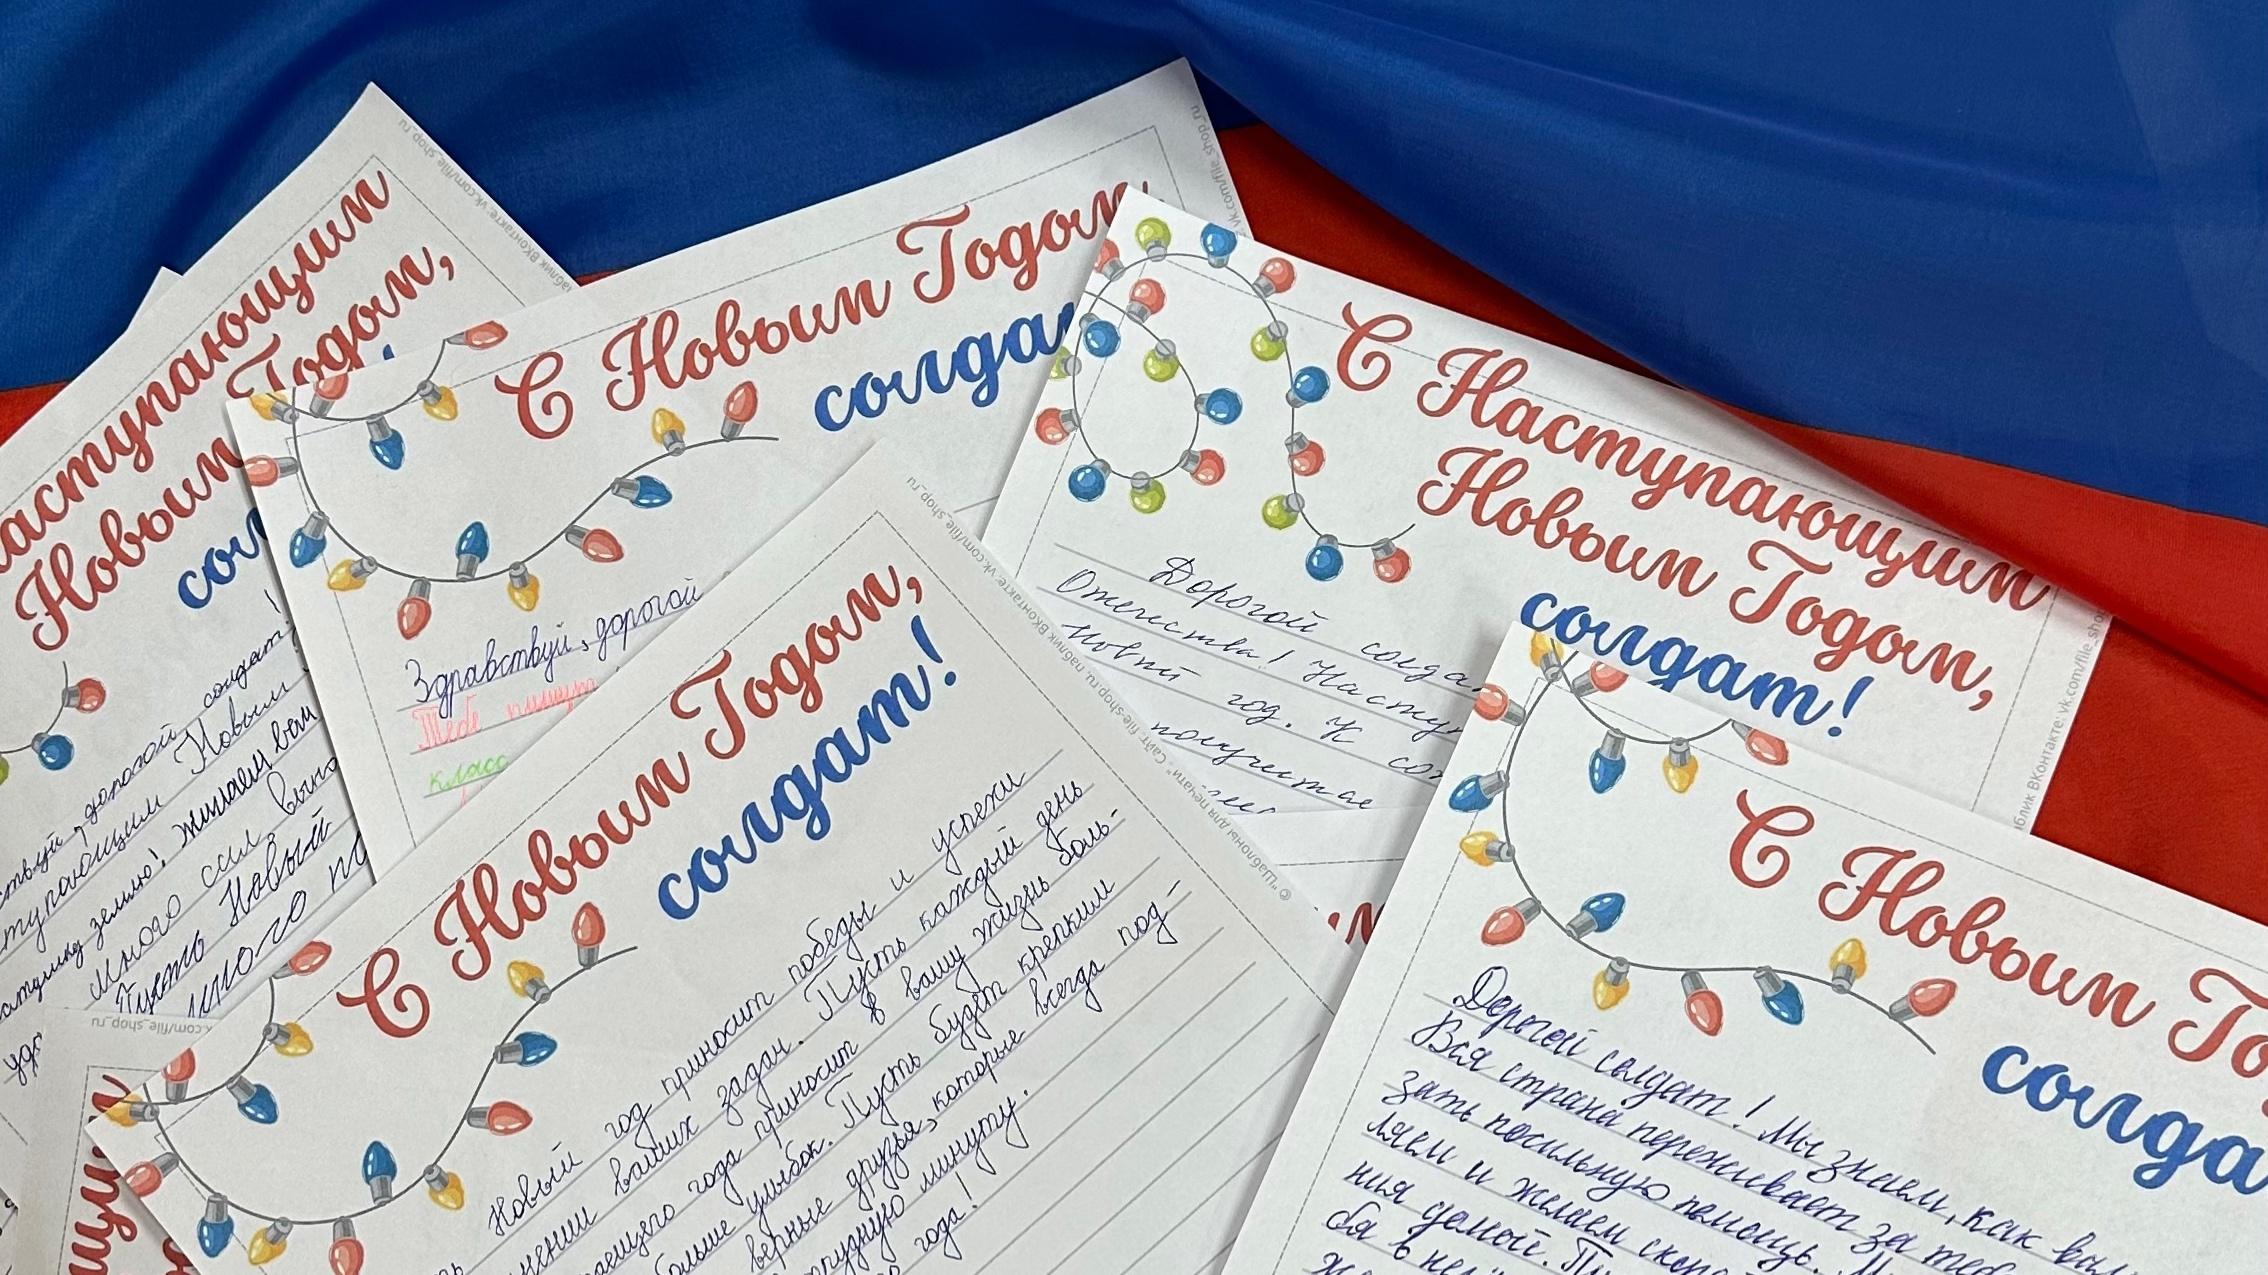 Наступающим
Новым Годом,
сол
дорогой солдат!
Новым
землю! Желаем вам
Много сил,
Пусть Новый
много по
vk.com/file_shop_ru
С Новым Годом,
солдат
Здравствуй, дорогой
Тебе пишут
класс
vk.com/file_shop_ru
С Наступающим
Новым Годом,
солдат!
Дорогой солда
Отечества! Наступ
Новый год. К сож
получится
ВКонтакте: vk.com/file_sho
С Новым Годом,
солдат!
Новый год приносит победы и успехи
ваших задач. Пусть каждый день
года приносит в вашу жизнь боль-
больше улыбок. Пусть будет крепким
верные друзья, которые всегда под-
трудную минуту.
года!
© "Шаблоны для печати" Сайт: file-shop.ru, паблик ВКонтакте: vk.com/file_shop_ru
С Новым Го
солда
Дорогой солдат! Мы знаем, как
Вся страна переживает за тебя
зать посильную помощь.
ляем и желаем скоре
ния домой. Пу
ба в не